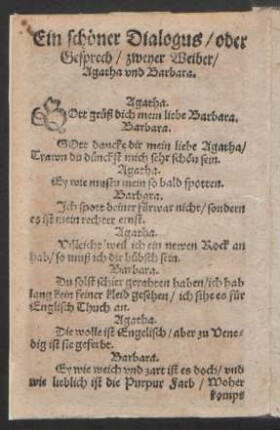 Ein schöner Dialogus / oder
Gesprech / zweyer Weiber /
Agatha vnd Barbara.
Agatha.
GOtt grüß dich mein liebe Barbara.
Barbara.
GOtt dancke dir mein liebe Agatha /
Trawn du dünckst mich sehr schön sein.
Agatha.
Ey wie mustu mein so bald spotten.
Barbara.
Ich spott deiner fürwar nicht / sondern
es ist mein rechter ernst.
Agatha.
Villeicht weil ich ein newen Rock an
hab / so muß ich dir hübsch sein.
Barbara.
Du solst schier gerahten haben / ich hab
lang kein feiner kleid gesehen / ich sihe es für
Englisch Thuch an.
Agatha.
Die wolle ist Engelisch / aber zu Vene-
dig ist sie geferbt.
Barbara.
Ey wie weich vnd zart ist es doch / vnd
wie lieblich ist die Purpur Farb / Woher
kompt